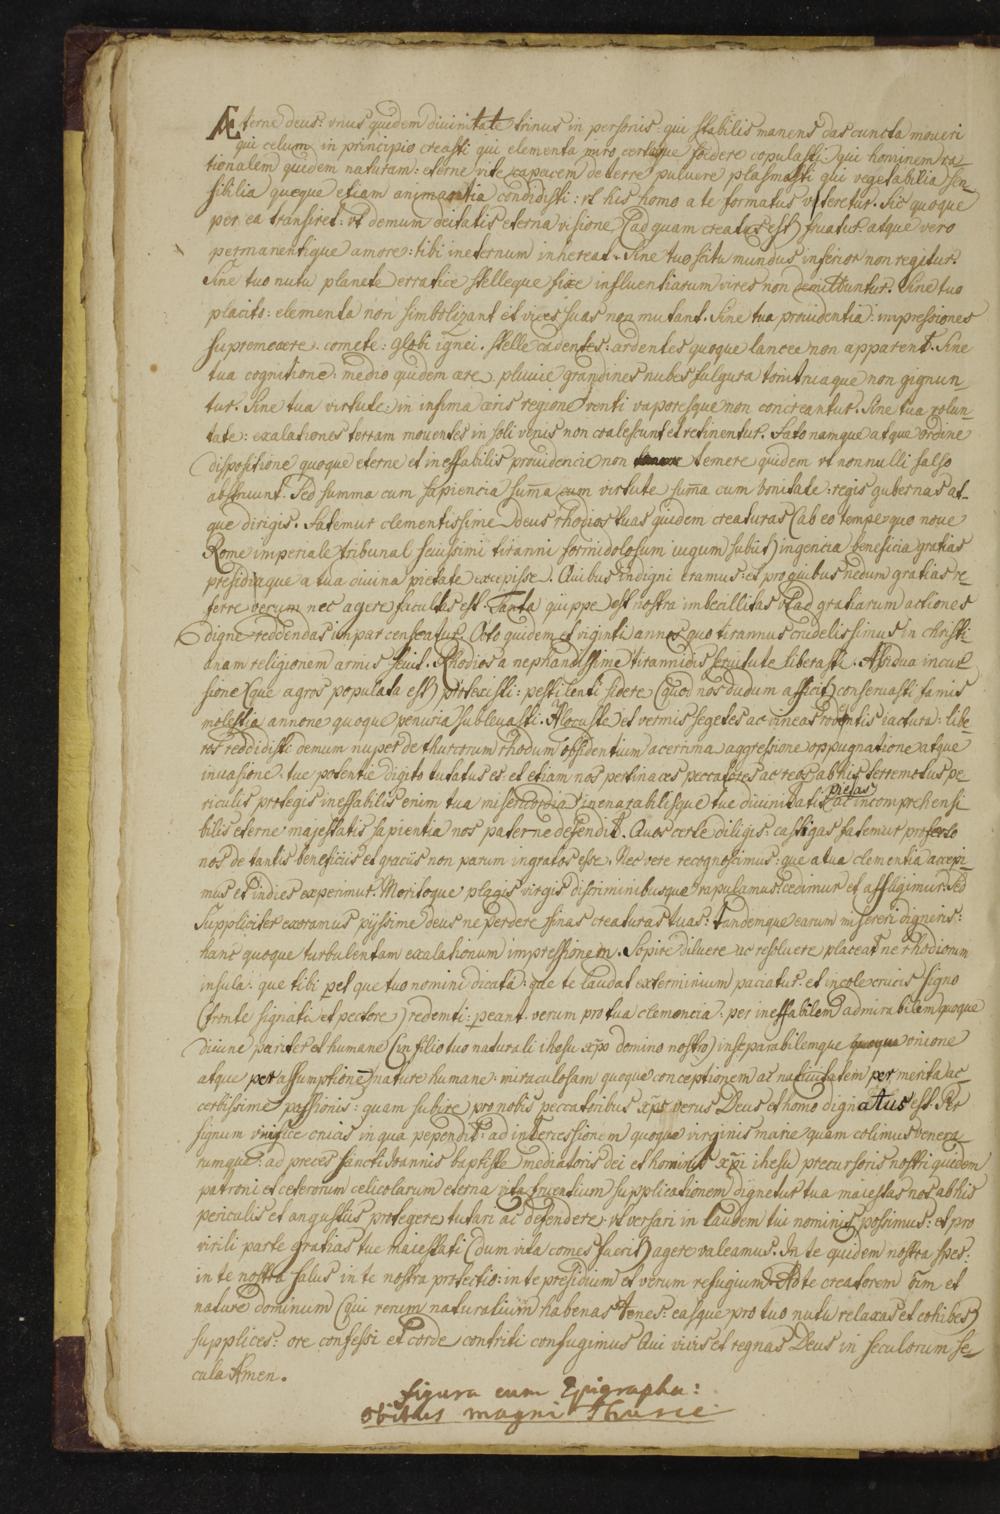 Æterne deus: vnus quidem diuinitate trinus in personis qui stabilis manens das cuncta moueri
qui celum in principio creasti qui elementa miro certoque foedere copulasti: qui hominem ra-
tionalem quidem naturam: eterne vite capacem de terre puluere plasmasti qui vegetabilia sen-
sibilia queque etiam animantia condidisti: vt his homo a te formatus vteretur. Sic quoque
per ea transiret: vt demum deitatis eterna visione (ad quam creatus est) fruatur atque vero
permanentique amore: tibi in eternum inhereat. Sine tuo scitu mundus inferior non regitur.
Sine tuo nutu planete erratice stelleque fixe influentiarum vires non demittuntur. Sine tuo
placito: elementa non simbolizant et vices suas non mutant. Sine tua prouidentia: impressiones
supremo aere. comete: globi ignei. stelle cadentes: ardentes quoque lancee non apparent. Sine
tua cognitione: medio quidem aere pluuie grandines nubes fulgura tonitruaque non gignun
tur. Sine tua virtute: in infima aeris regione venti vaporesque non concreantur. Sine tua volun-
tate: exalationes terram mouentes in soli venis non coalescunt et retinentur. Fato namque atque ordine
dispositione quoque eterne et ineffabilis prouidencie non temere quidem vt nonnulli falso
abstruunt. Sed summa cum sapiencia sum̄a cum virtute sum̄a cum bonitate: regis gubernas at-
que dirigis. Fatemur clementissime Deus rhodios tuas quidem creaturas (ab eo tempore quo noue
Rome imperiale tribunal seuissimi tiranni formidolosum iugum subiit) ingencia beneficia gratias
presidiaque a tua diuina pietate excepisse. Quibus indigni eramus: et pro quibus nedum gratias re-
ferre verum nec agere facultas est. Tanta quippe est nostra imbecillitas vt ad gratiarum actiones
digne reddendas impar censeatur. Octo quidem et viginti annos quo tirannus crudelissimus in christi
anam religionem armis seuit. Rhodios a nephandissime tirannidis seruitute liberasti. Assidua incur
sione (que agros populata est) protexisti: pestilenti sidere (quod nos dudum afficit) conseruasti famis
molestia annone quoque penuria subleuasti. A locuste et vermis segetes ac vineas rodentis iactura: libe-
ros reddidisti demum nuper de thurcorum rhodum obsidentium acerrima aggressione oppugnatione atque
inuasione. tue potentie digito tutatus es et etiam nos pertinaces peccatores ac reos ab his terremotus pe
riculis protegis ineffabilis enim tua misericordia inenarabilisque tue diuinitatis pietas ac incomprehensi
bilis eterne majestatis sapientia nos paterne defendit. Quos certe diligis: castigas fatemur profecto
nos de tantis beneficiis et graciis non parum ingratos esse. Nec vere recognoscimus: que a tua clementia accepi-
mus et indies experimur. Meritoque plagis virgis discriminibusque vapulamus: cedimur et affligimur. Sed
Suppliciter exoramus pijssime deus ne perdere sinas creaturas tuas: tandemque earum misereri digneris:
hanc quoque turbulentam exalationum impressionem. Sopire diluere ac resoluere placeat ne rhodiorum
insula: que tibi que tuo nomini dicata: que te laudat exterminium paciatur. et incole crucis signo
(fronte signati et pectore) redemti: pereant. verum pro tua clemencia: per ineffabilem admirabilem quoque
diuine pariter et humane (in filio tuo naturali ihesu xp̄o domino nostro) inseparabilemque vnione
atque per assumptionē nature humane: miraculosam quoque conceptionem ac natiuitatem per merita ac-
cerbissime passionis: quam subire pro nobis peccatoribus xp̄s verus Deus et homo dignatus est. Per
signum viuifice crucis in qua pependit: ad intercessionem quoque virginis marie quam colimus venera-
mumque: ad preces sancti Joannis baptiste mediatoris dei et hominis xp̄i ihesu precursoris nostri quidem
patroni et ceterorum celicolarum eterna vita fruentium supplicationem dignetur tua maiestas nos ab his
periculis et angustiis protegere tutari ac defendere vt versari in laudem tui nominis possimus: et pro
virili parte gratias tue maiestati (dum vita comes fuerit) agere valeamus. In te quidem nostra spes:
in te nostra salus in te nostra protectio: in te presidium et verum refugium. Ad te creatorem om̄ et
nature dominum (qui rerum naturalium habenas tenes: easque pro tuo nutu relaxas et cohibes)
supplices: ore confessi et corde contriti confugimus Qui viuis et regnas Deus in seculorum se-
cula Amen.
figura cum Epigrapha:
obitus magni Thurce.